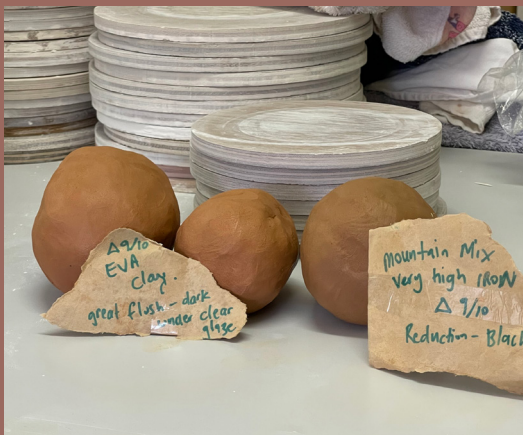 Δ9/10
EVA
Clay.
great flush - dark
under clear
glaze
Mountain Mix
very high IRON
Δ 9/10
Reduction - Black